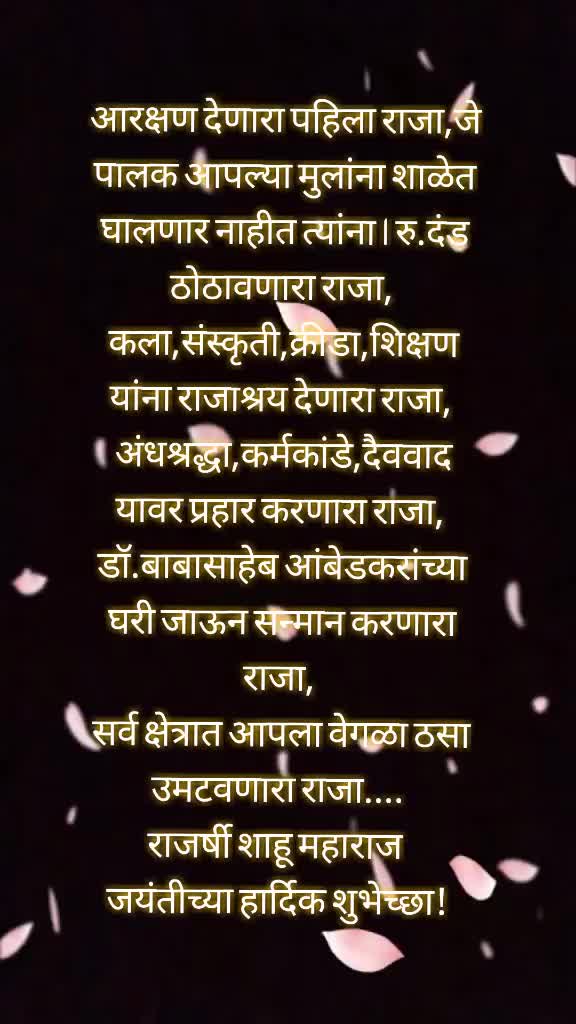 आरक्षण देणारा पहिला राजा,जे
पालक आपल्या मुलांना शाळेत
घालणार नाहीत त्यांना।रु.दंड
ठोठावणारा राजा,
कला,संस्कृती,क्रीडा,शिक्षण
यांना राजाश्रय देणारा राजा,
अंधश्रद्धा,कर्मकांडे,दैववाद
यावर प्रहार करणारा राजा,
डॉ.बाबासाहेब आंबेडकरांच्या
घरी जाऊन सन्मान करणारा
राजा,
सर्व क्षेत्रात आपला वेगळा ठसा
उमटवणारा राजा....
राजर्षी शाहू महाराज
जयंतीच्या हार्दिक शुभेच्छा!